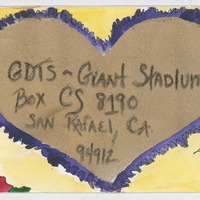 GDTS ~ GIANT STADIUM
BOX CS 8190
SAN RAFAEL, CA.
94912